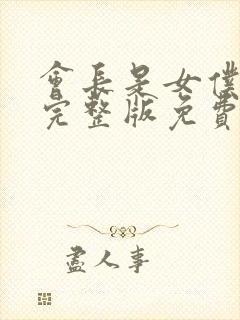 會長是女僕
完整版免費
盡人事